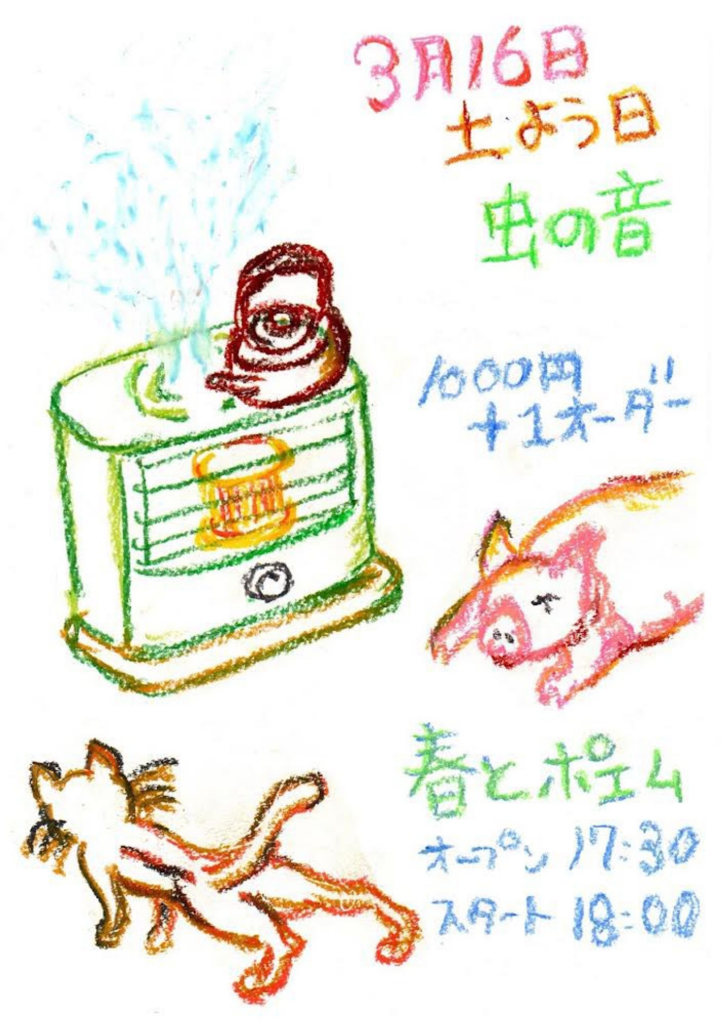 3月16日
土よう日
虫の音
1000円
+1オーダー
春とポエム
オープン 17:30
スタート 18:00